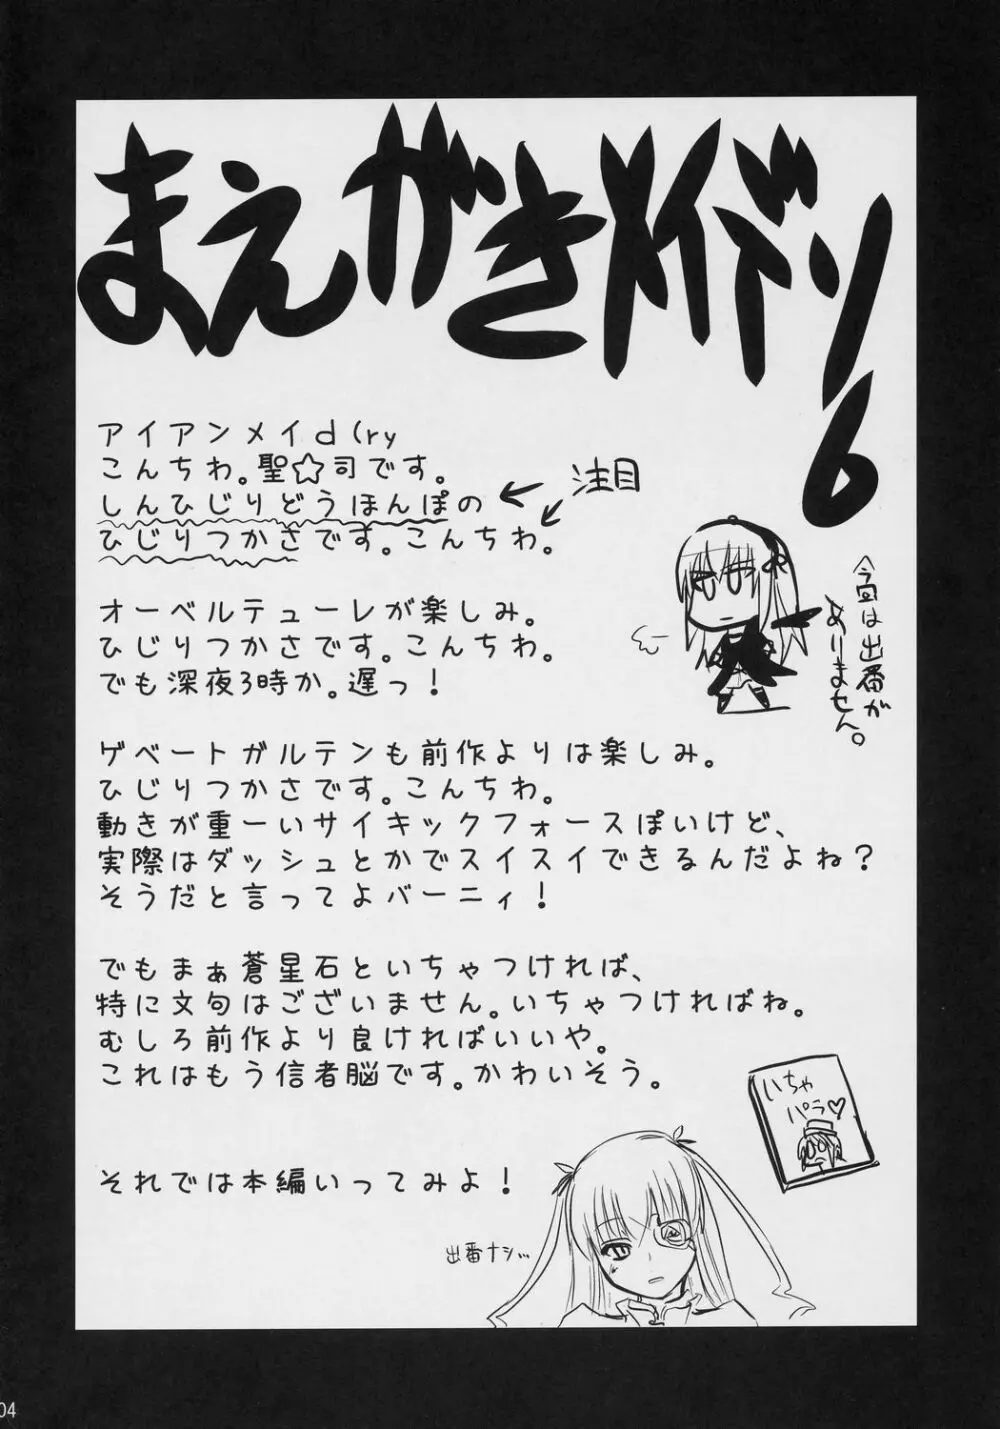 まえがきメイデン6
アイアンメイd(ry
こんちわ。聖☆司です。
しんひじりどうほんぽの
ひじりつかさです。こんちわ。
注目
オーベルテューレが楽しみ。
ひじりつかさです。こんちわ。
でも深夜3時か。遅っ！
今回は出番が
ありません。
ゲベートガルテンも前作よりは楽しみ。
ひじりつかさです。こんちわ。
動きが重ーいサイキックフォースぽいけど、
実際はダッシュとかでスイスイできるんだよね？
そうだと言ってよバーニィ！
でもまぁ蒼星石といちゃつければ、
特に文句はございません。いちゃつければね。
むしろ前作より良ければいいや。
これはもう信者脳です。かわいそう。
いちゃ
パラ♡
それでは本編いってみよ！
出番ナシ…
04